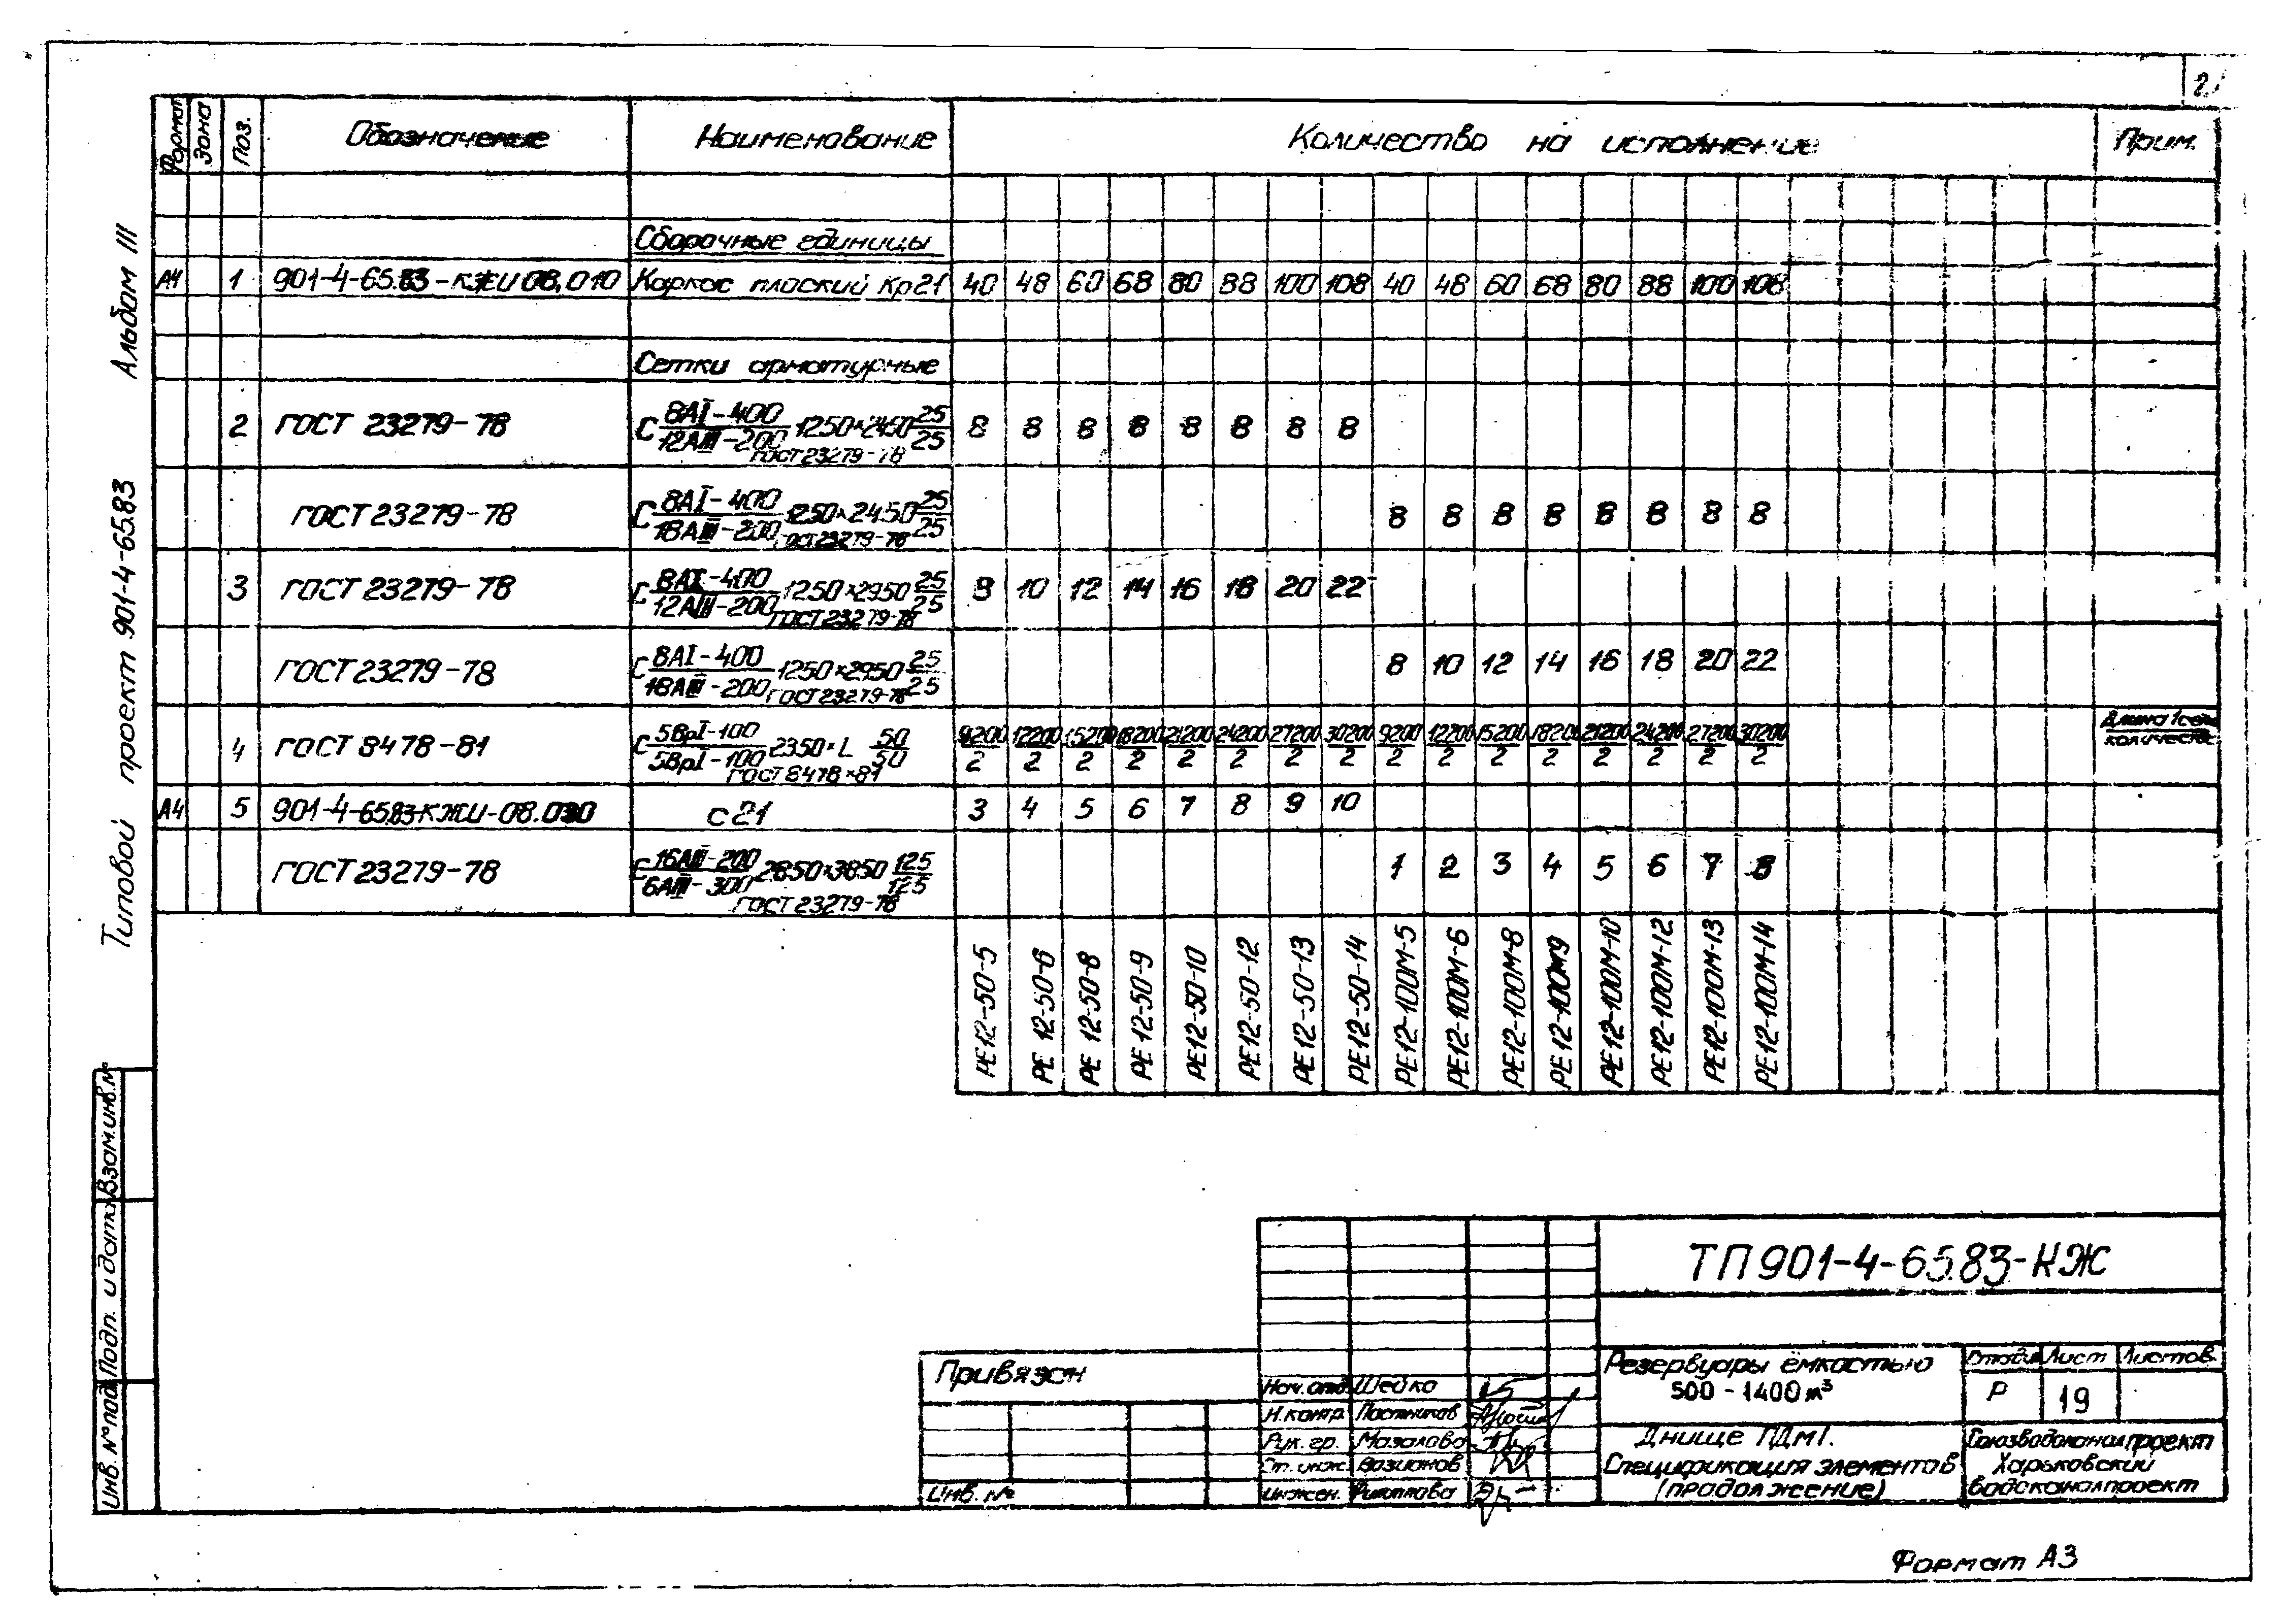 2
Формат Зона Поз. Обозначение Наименование Количество на исполнение Прим.
Сборочные единицы
А4 1 901-4-65.83-КЖИ 08.010 Каркас плоский Кр21 40 48 60 68 80 88 100 108 40 48 60 68 80 88 100 108
Сетки арматурные
2 ГОСТ 23279-78 С 8АI-400/12АIII-200 1250×2450 25/25 ГОСТ 23279-78 8 8 8 8 8 8 8 8
ГОСТ 23279-78 С 8АI-400/18АIII-200 1250×2450 25/25 ГОСТ 23279-78 8 8 8 8 8 8 8 8
3 ГОСТ 23279-78 С 8АI-400/12АIII-200 1250×2950 25/25 ГОСТ 23279-78 8 10 12 14 16 18 20 22
ГОСТ 23279-78 С 8АI-400/18АIII-200 1250×2950 25/25 ГОСТ 23279-78 8 10 12 14 16 18 20 22
4 ГОСТ 8478-81 С 5ВрI-100/5ВрI-100 2350×L 50/50 ГОСТ 8478×81 9200/2 12200/2 15200/2 18200/2 21200/2 24200/2 27200/2 30200/2 9200/2 12200/2 15200/2 18200/2 21200/2 24200/2 27200/2 30200/2 Длина 1 сет./количеств.
А4 5 901-4-65.83-КЖИ-08.030 С21 3 4 5 6 7 8 9 10
ГОСТ 23279-78 С 16АIII-200/6АIII-300 2850×3850 125/125 ГОСТ 23279-78 1 2 3 4 5 6 7 8
РЕ12-50-5 РЕ 12-50-6 РЕ 12-50-8 РЕ 12-50-9 РЕ12-50-10 РЕ12-50-12 РЕ12-50-13 РЕ12-50-14 РЕ12-100М-5 РЕ12-100М-6 РЕ12-100М-8 РЕ12-100М9 РЕ12-100М-10 РЕ12-100М-12 РЕ12-100М-13 РЕ12-100М-14
Типовой проект 901-4-65.83 Альбом III
Инв. № подл. Подп. и дата Взам.инв.№
ТП 901-4-65.83-КЖ
Привязан
Инв. №
Нач. отд. Шейко
Н.контр. Постников
Рук. гр. Мазалова
Ст. инж.
инжен.
Резервуары ёмкостью
500 - 1400 м³
Стадия Лист Листов
Р 19
Днище ПДм1.
Спецификация элементов
(продолжение)
Союзводоканалпроект
Харьковский
Водоканалпроект
Формат А3